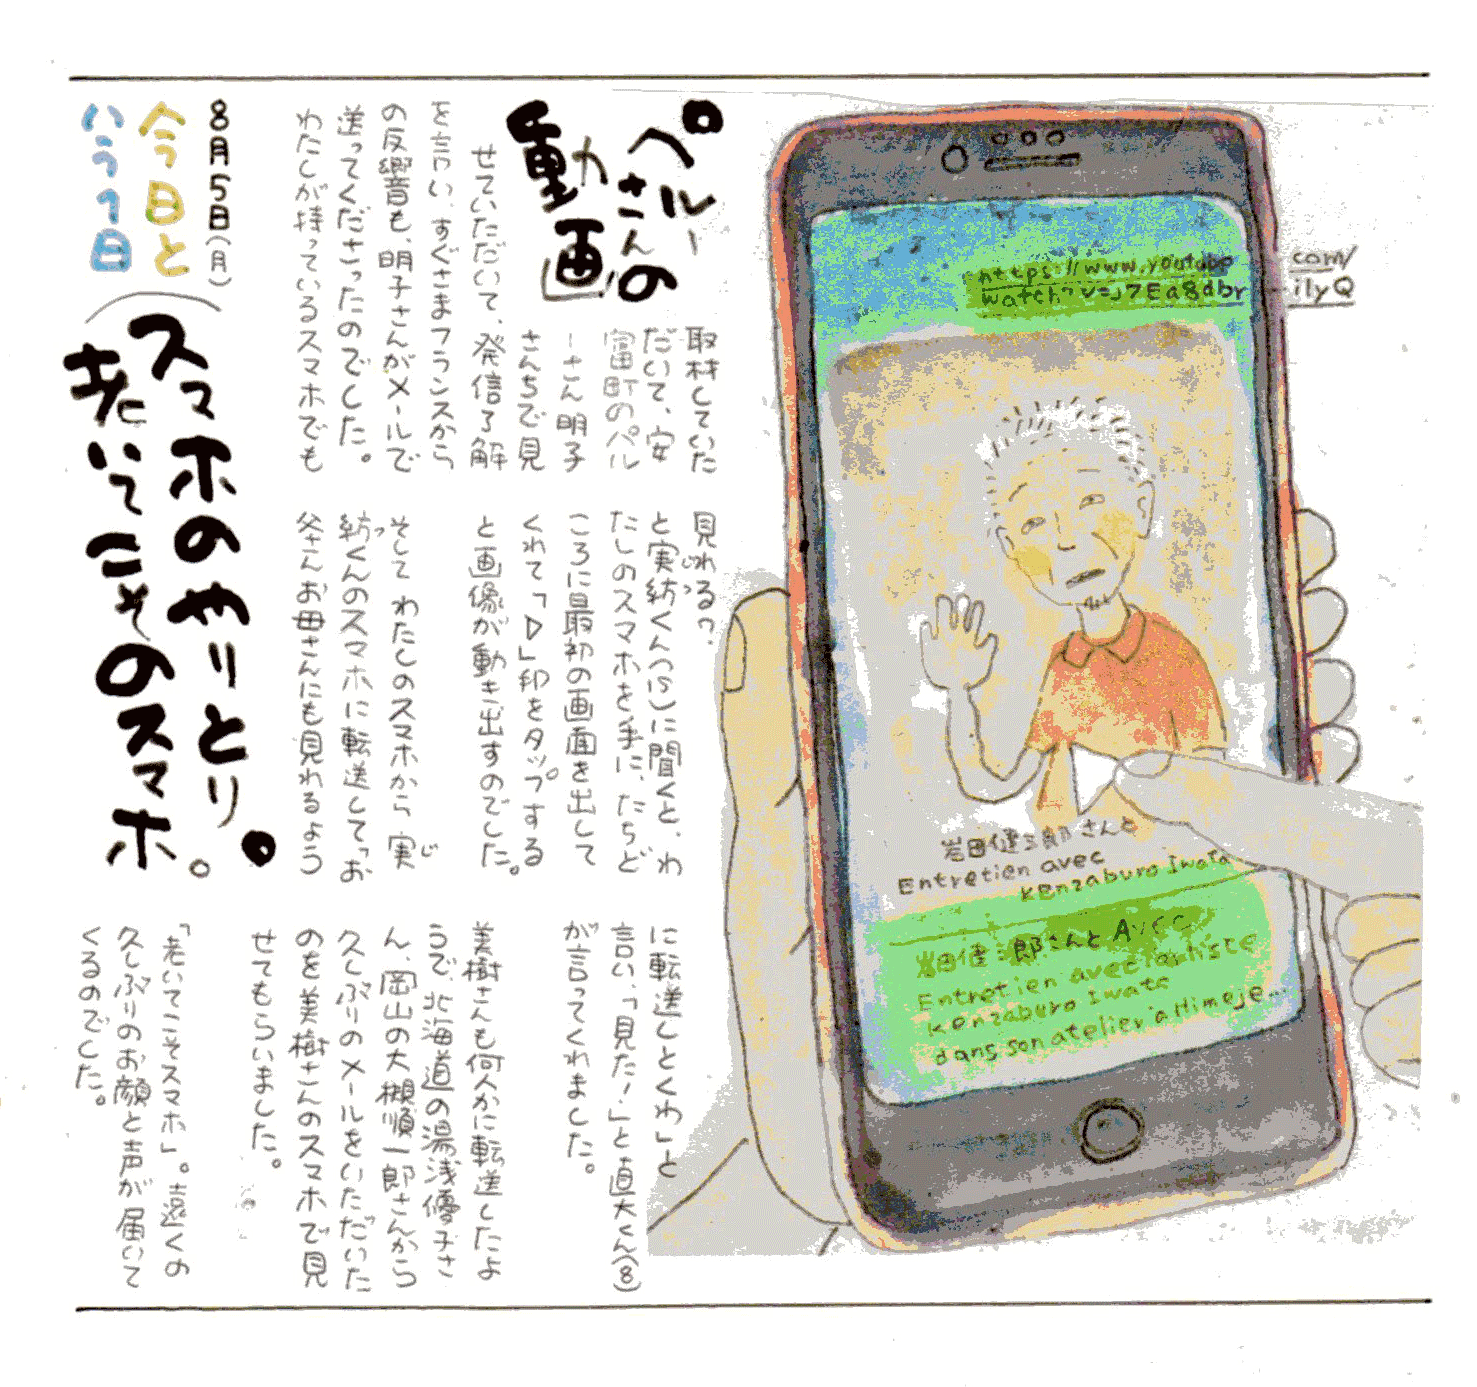 8月5日(月)
今日と
いう1日
スマホのやりとり。
老いてこそのスマホ。
ペルーさんの
動画!
取材していた
だいて、安
富町のパル
ーさん明子
さんちで見
せていただいて、発信了解
を言い、すぐさまフランスから
の反響も、明子さんがメールで
送ってくださったのでした。
わたしが持っているスマホでも
見れる?
と実紡くん(15)に聞くと、わ
たしのスマホを手に、たちど
ころに最初の画面を出して
くれて「▷」印をタップする
と画像が動き出すのでした。
そして わたしのスマホから 実
紡くんのスマホに転送して、お
父さんお母さんにも見れるよう
に転送しとくわ」と
言い、「見た!」と直大くん(8)
が言ってくれました。
美樹さんも何人かに転送したよ
うで、北海道の湯浅優子さ
ん、岡山の大槻順一郎さんから
久しぶりのメールをいただいた
のを美樹さんのスマホで見
せてもらいました。
「老いてこそスマホ」。遠くの
久しぶりのお顔と声が届いて
くるのでした。
https://www.youtube.com/
watch?v=J7Ea8dbrilyQ
岩田健三郎さんと
Entretien avec
Kenzaburo Iwata
岩田健三郎さんと Avec
Entretien avec l'artiste
Kenzaburo Iwata
dans son atelier à Himeje...